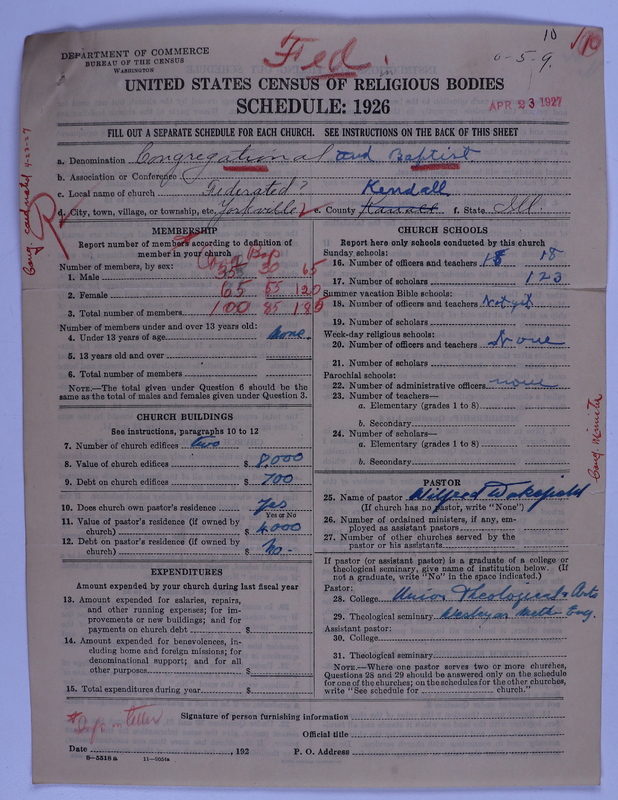 10
DEPARTMENT OF COMMERCE
BUREAU OF THE CENSUS
WASHINGTON
Fed.
0-5-9.
UNITED STATES CENSUS OF RELIGIOUS BODIES
SCHEDULE: 1926
APR 23 1927
FILL OUT A SEPARATE SCHEDULE FOR EACH CHURCH. SEE INSTRUCTIONS ON THE BACK OF THIS SHEET
a. Denomination Congregational and Baptist
b. Association or Conference
c. Local name of church Federated? Kendall
d. City, town, village, or township, etc. Yorkville e. County f. State Ill
MEMBERSHIP
Report number of members according to definition of member in your church
Number of members, by sex:
Cong Bap
1. Male 35 30 65
2. Female 65 55 120
3. Total number of members 100 85 185
Number of members under and over 13 years old:
4. Under 13 years of age none
5. 13 years old and over
6. Total number of members
NOTE.—The total given under Question 6 should be the same as the total of males and females given under Question 3.
CHURCH BUILDINGS
See instructions, paragraphs 10 to 12
7. Number of church edifices two
8. Value of church edifices $ 8,000
9. Debt on church edifices $ 700
10. Does church own pastor's residence? Yes
Yes or No
11. Value of pastor's residence (if owned by church) $ 4000
12. Debt on pastor's residence (if owned by church) $ No -
EXPENDITURES
Amount expended by your church during last fiscal year
13. Amount expended for salaries, repairs, and other running expenses; for improvements or new buildings; and for payments on church debt $
14. Amount expended for benevolences, including home and foreign missions; for denominational support; and for all other purposes $
15. Total expenditures during year $
CHURCH SCHOOLS
Report here only schools conducted by this church
Sunday schools:
16. Number of officers and teachers 18 18
17. Number of scholars 123
Summer vacation Bible schools:
18. Number of officers and teachers Not yet
19. Number of scholars
Week-day religious schools:
20. Number of officers and teachers None
21. Number of scholars
Parochial schools:
22. Number of administrative officers none
23. Number of teachers—
a. Elementary (grades 1 to 8)
b. Secondary
24. Number of scholars—
a. Elementary (grades 1 to 8)
b. Secondary
PASTOR
25. Name of pastor Wilfred Wakefield
(If church has no pastor, write "None")
26. Number of ordained ministers, if any, employed as assistant pastors
27. Number of other churches served by the pastor or his assistants
If pastor (or assistant pastor) is a graduate of a college or theological seminary, give name of institution below. (If not a graduate, write "No" in the space indicated.)
Pastor:
28. College Union Theological & Arts
29. Theological seminary Wesleyan Meth Eng.
Assistant pastor:
30. College
31. Theological seminary
NOTE.—Where one pastor serves two or more churches, Questions 28 and 29 should be answered only on the schedule for one of the churches; on the schedules for the other churches, write "See schedule for church."
Signature of person furnishing information
Official title
Date , 192 P. O. Address
8-5318 a 11-9054a